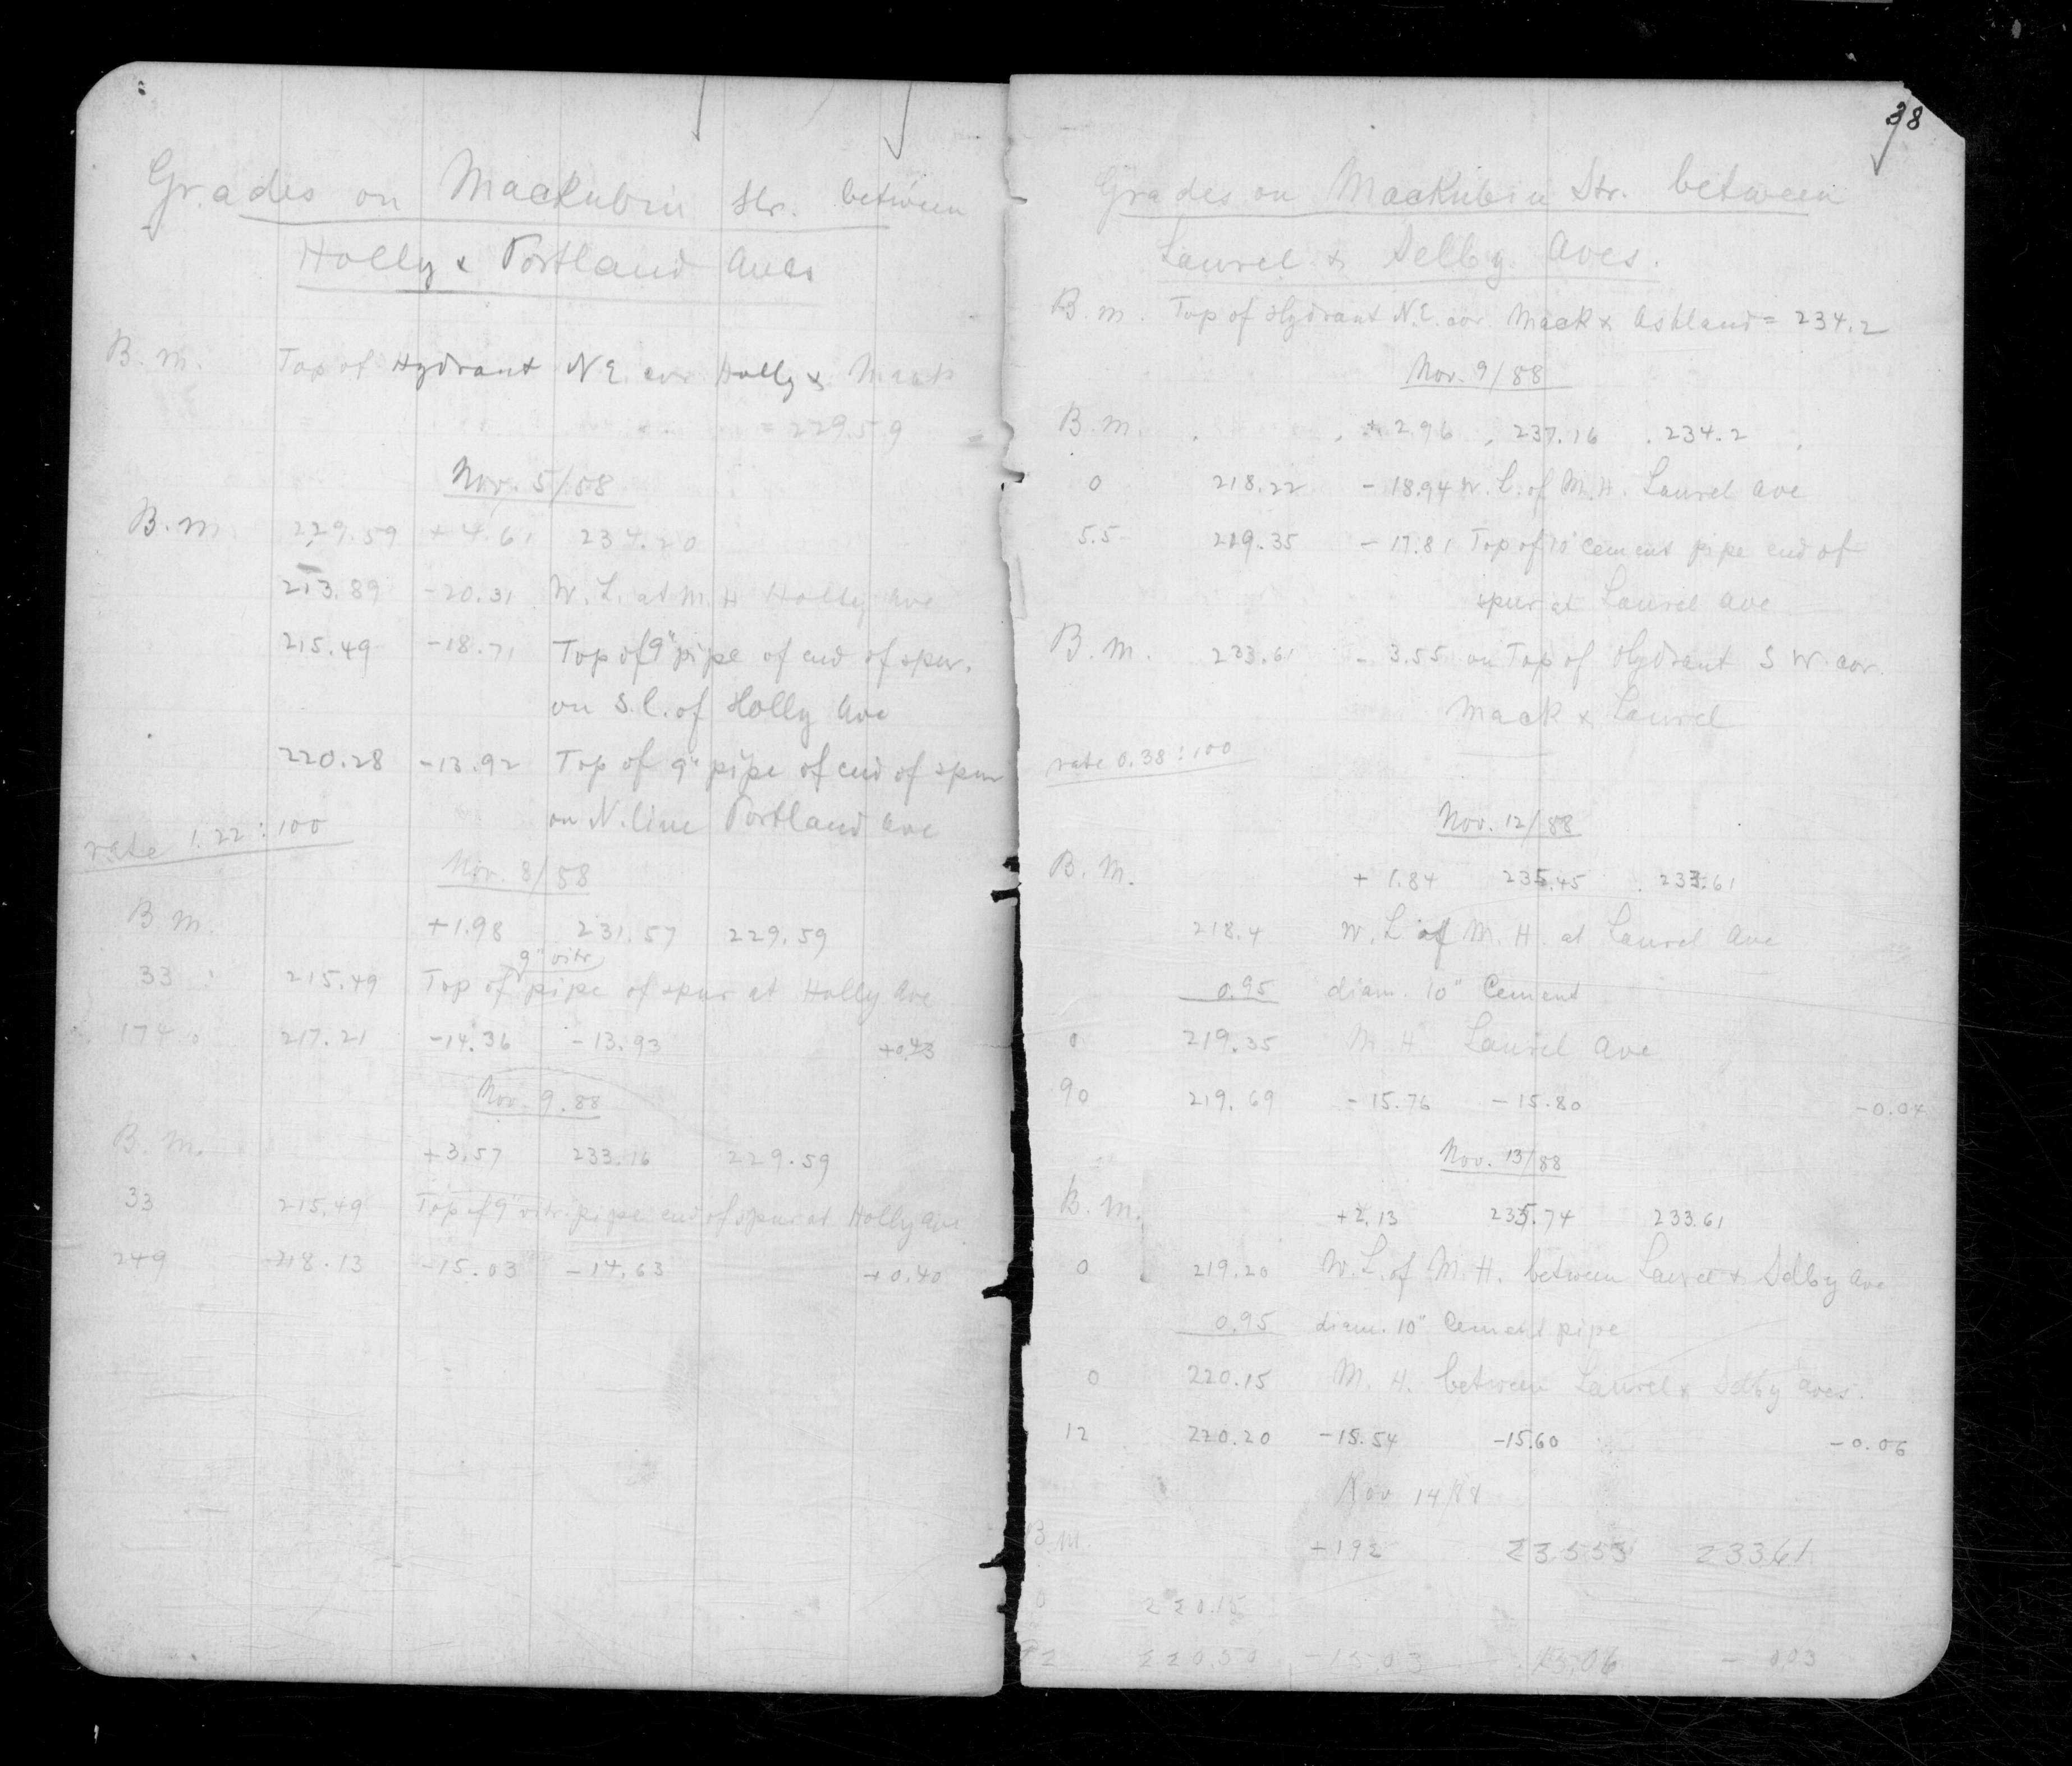 Grades on Mackubin Str. between
Holly & Portland Aves
B.M. Top of Hydrant N E. cor Holly & Mack
= 229.59
Nov. 5/88
B.M. 229.59 + 4.61 234.20
213.89 -20.31 W. L. at M. H Holly Ave
215.49 -18.71 Top of 9" pipe of end of spur.
on S. l. of Holly Ave
220.28 -13.92 Top of 9" pipe of end of spur
on N. line Portland Ave
rate 1.22 : 100
Nov. 8/88
B M. +1.98 231.57 229.59
9" vitr
33 215.49 Top of pipe of spur at Holly Ave
174 217.21 -14.36 -13.93 +0.43
Nov. 9. 88
B. M. +3.57 233.16 229.59
33 215.49 Top of 9" vitr. pipe end of spur at Holly Ave
249 218.13 -15.03 -14.63 +0.40
38
Grades on Mackubin Str. between
Laurel & Selby Aves.
B. M. Top of Hydrant N.E. cor. Mack & Ashland = 234.2
Nov. 9/88
B.M. + 2.96 237.16 234.2
0 218.22 - 18.94 W. L. of M. H. Laurel Ave
5.5 219.35 - 17.81 Top of 10" cement pipe end of
spur at Laurel Ave
B. M. 233.61 - 3.55 on Top of Hydrant S W. cor.
Mack & Laurel
rate 0.38 : 100
Nov. 12/88
B. M. + 1.84 235.45 233.61
218.4 W. L of M. H. at Laurel Ave
0.95 diam. 10" Cement
0 219.35 M. H Laurel Ave
90 219.69 - 15.76 - 15.80 -0.04
Nov. 13/88
B. M. +2.13 235.74 233.61
0 219.20 W. L. of M. H. between Laurel & Selby Ave
0.95 diam. 10" Cement pipe
0 220.15 M. H. between Laurel & Selby Aves.
12 220.20 -15.54 -15.60 -0.06
Nov 14/88
B M. +192 23553 23361
0 220.15
92 220.50 -15.03 15.06 - 0.03